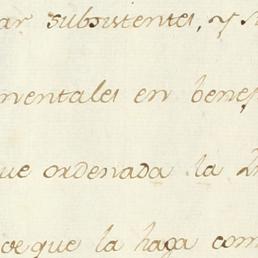 ar subsistentes, y
mentales en benef
ue ordenada la
que la haga com